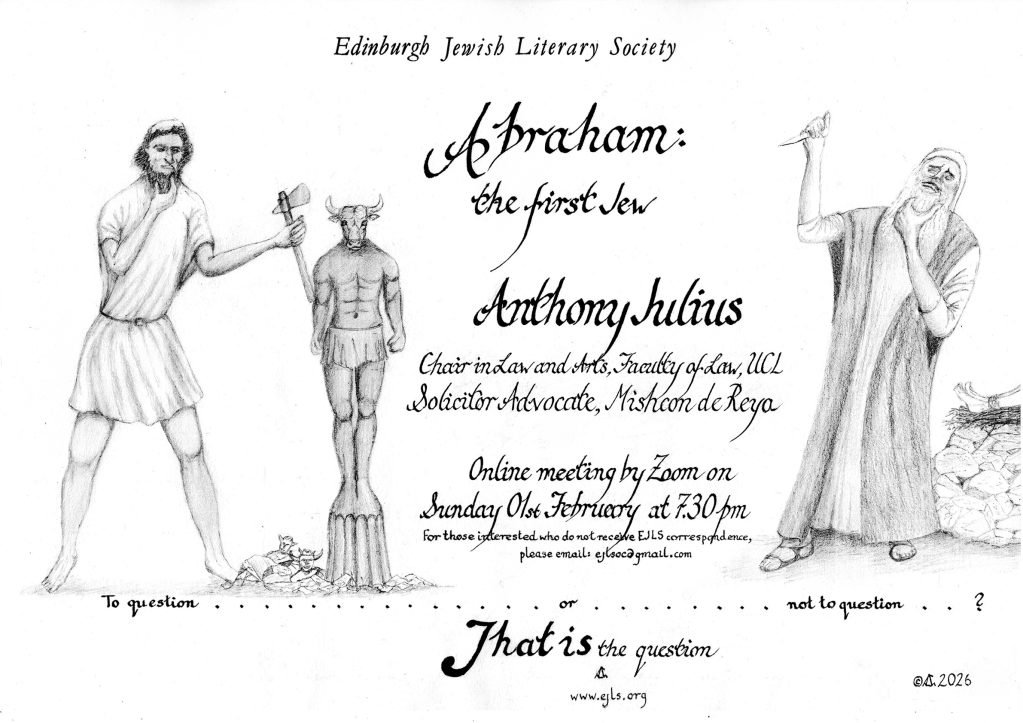 Edinburgh Jewish Literary Society
Abraham:
the first Jew
Anthony Julius
Chair in Law and Arts, Faculty of Law, UCL
Solicitor Advocate, Mishcon de Reya
Online meeting by Zoom on
Sunday 01st February at 7.30 pm
For those interested who do not receive EJLS correspondence,
please email: ejlsoc@gmail.com
To question . . . . . . . . . . . . . . . . . or . . . . . . . . . not to question . . ?
That is the question
www.ejls.org
© 2026